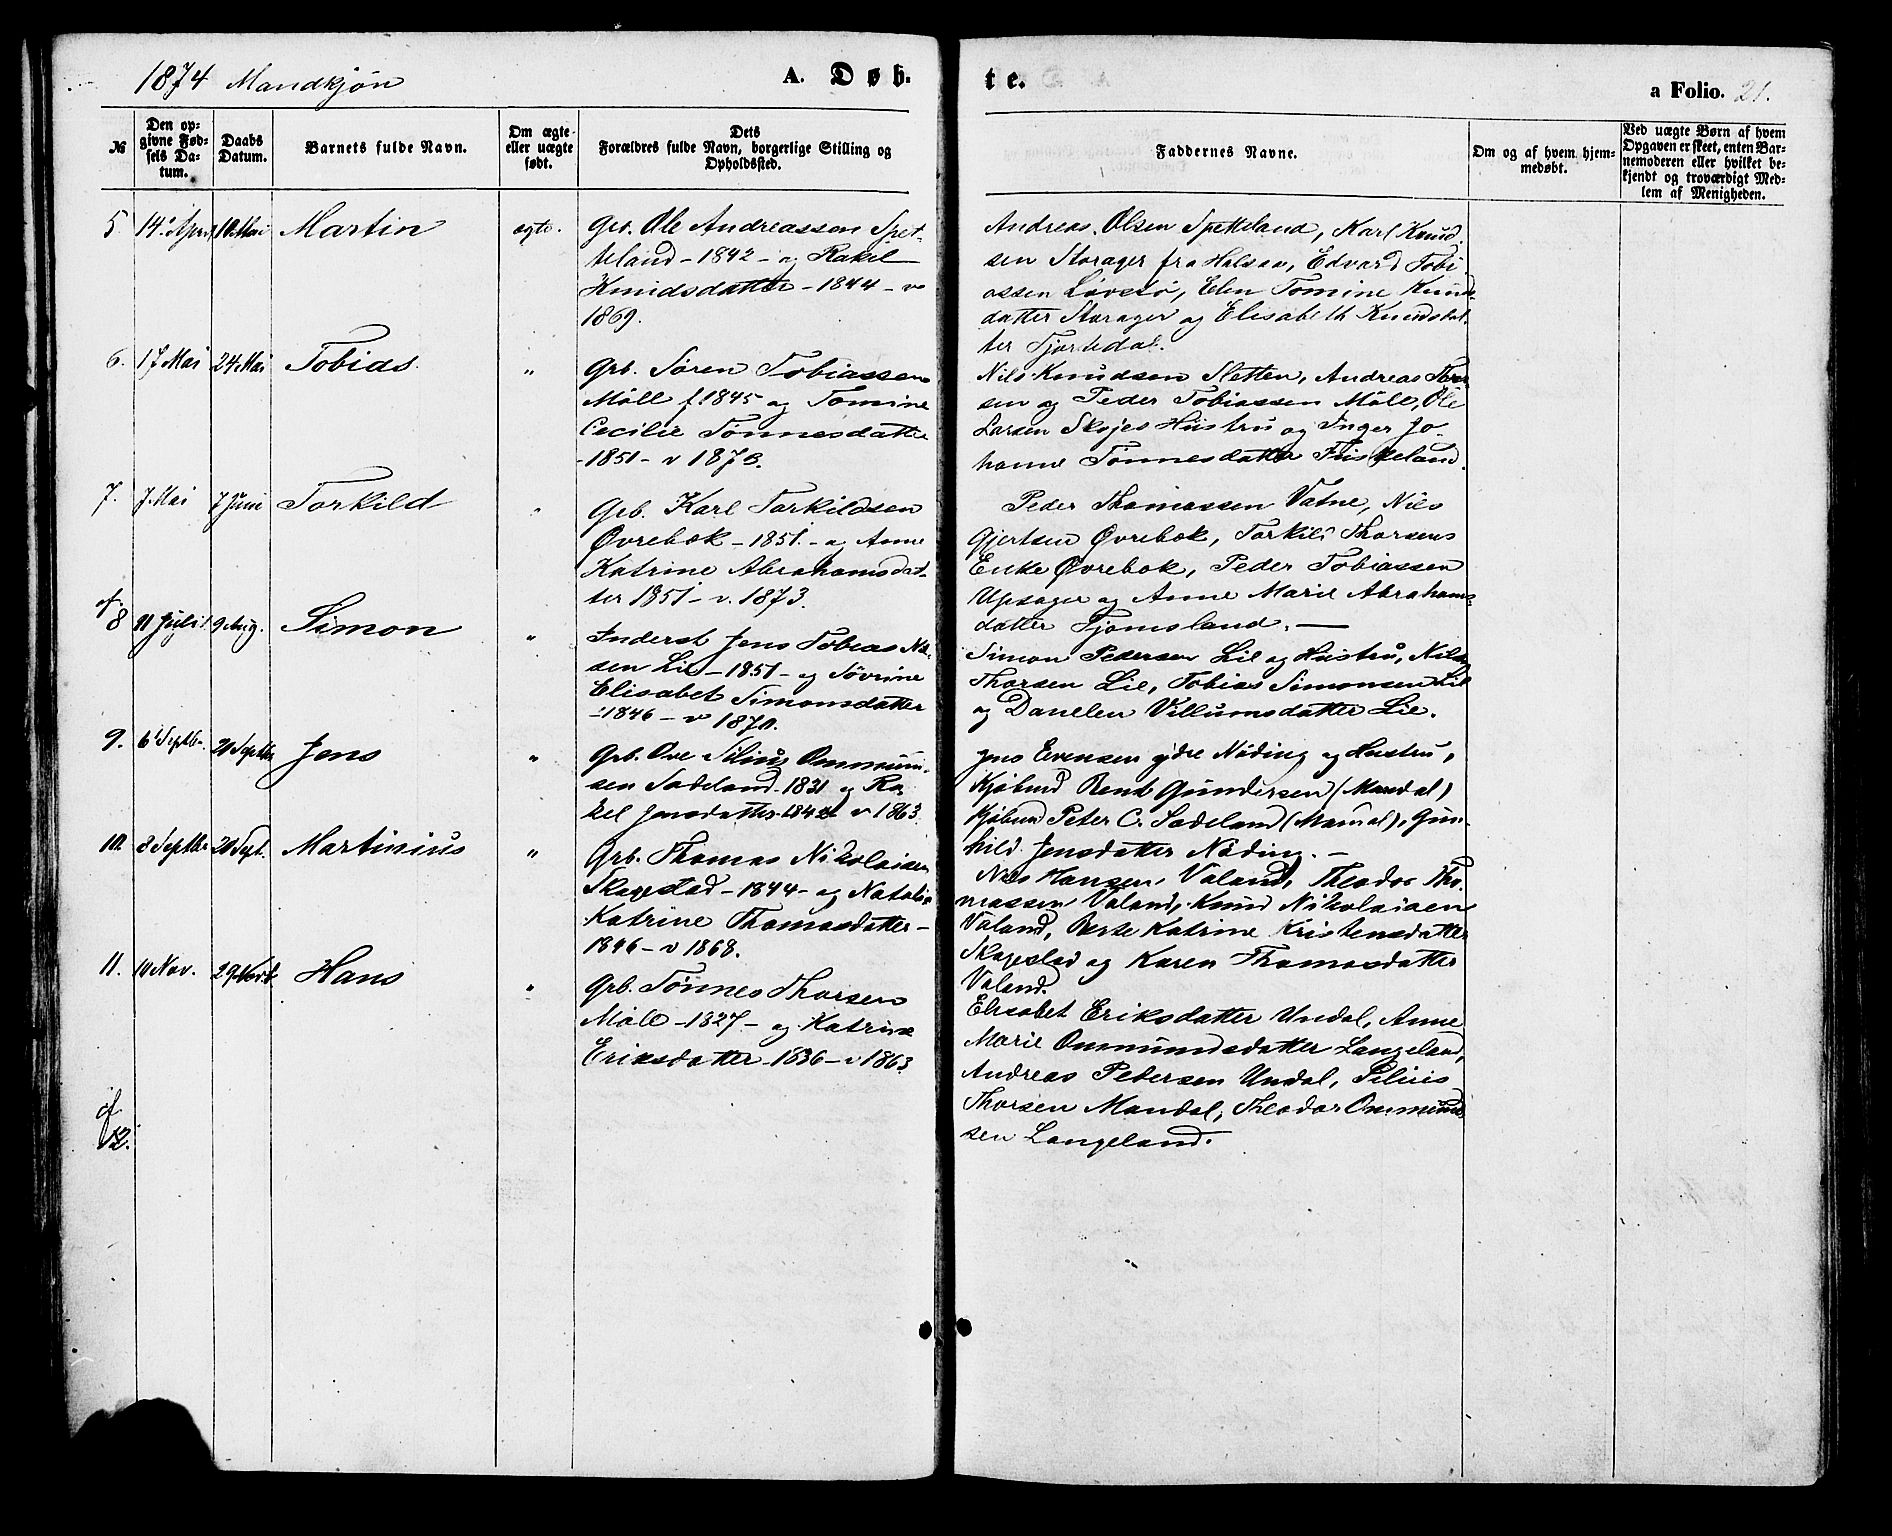 1874 Mandkjøn
A. Døb-
te.
a Folio. 21.
№
Den op-
givne Fød-
sels Da-
tum.
Daabs
Datum.
Barnets fulde Navn.
Om ægte
eller uægte
født.
Dets
Forældres fulde Navn, borgerlige Stilling og
Opholdssted.
Faddernes Navne.
Om og af hvem hjem-
medøbt.
Ved uægte Børn af hvem
Opgaven er skeet, enten Bar-
nemoderen eller hvilket be-
kjendt og troværdigt Med-
lem af Menigheden.
5. 14. April 10 Mai Martin ægte.
Grb. Ole Andreassen Spet-
teland - 1842 - og Rakil
Knudsdatter - 1844 - v
1869.
Andreas Olsen Spetteland, Karl Knud-
sen Storager fra Halsaa, Edvard Tobi-
assen Løvstø, Elen Tomine Knuds-
datter Storager og Elisabeth Knudsdat-
ter
6. 17 Mai 24 Mai Tobias "
Grb. Søren Tobiassen
Møll f. 1845 og Tomine
Cecilie Tønnesdatter
- 1851 - v 1873.
Nils Knudsen Sletten, Andreas Thor-
sen og Peder Tobiassen Møll, Ole
Larsen Skojes Hustru og Inger Jo-
hanne Tønnesdatter
7. 7. Mai 7 Juni Torkild "
Grb. Karl Torkildsen
Øvrebøk - 1851. - og Anne
Katrine Abrahamsdat-
ter 1851 - v. 1873.
Peder Thomassen Vatne, Nils
Gjertsen Øvrebøk, Torkild Thorsens
Enke Øvrebøk, Peder Tobiassen
Upsager og Anne Marie Abrahams-
datter Tjomsland. -
8 11 Juli 9 Aug. Simon "
Inderst Jens Tobias
sen Lie - 1851 - og Sövrine
Elisabet Simonsdatter
- 1846 - v 1870.
Simon Pedersen Lie og Hustru, Nils
Thorsen Lie, Tobias Simonsen Lie
og Danelen Villumsdatter Lie.
9. 6' Septbr. 20 Septbr Jens "
Grb. Ove Silius Ommund-
sen Sodeland - 1831 og Ra-
kel Jensdatter - 1842 v 1863.
Jens Evensen ydre Nöding og Hustru,
Kjøbmd Bent Gundersen (Mandal)
Kjøbmd Peter C. Sodeland (Mandal), Gun-
hild Jensdatter Nöding. -
10. 8 Septbr 20 Sept. Martinius "
Grb. Thomas Nikolaisen
Skagestad - 1844 - og Natalie
Katrine Thomasdatter -
1846 - v 1868.
Nils Hansen Valand, Theodor Tho-
massen Valand, Knud Nikolaisen
Valand, Berte Katrine Kristensdatter
Skagestad og Karen Thomasdatter
Valand.
11. 10 Nov. 29 Novbr Hans "
Grb. Tönnes Thorsen
Møll - 1827 - og Katrine
Eriksdatter - 1836 - v 1863.
Elisabet Eriksdatter Undal, Anne
Marie Ommundsdatter Langeland,
Andreas Pedersen Undal, Silius
Thorsen Mandal, Theodor Ommund-
sen Langeland.
12.